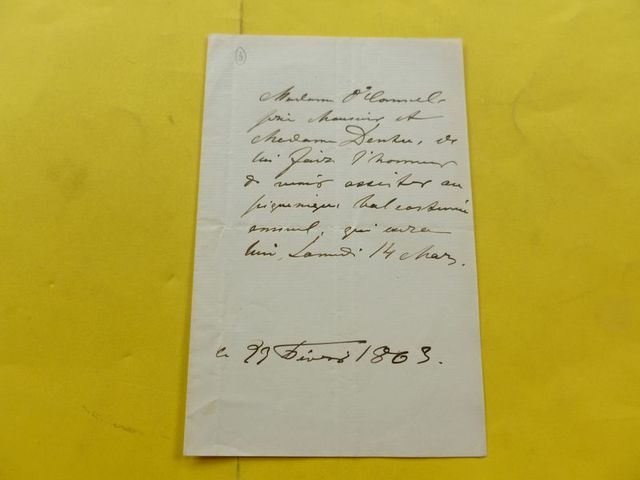 Madame O'Connell
prie Monsieur et
Madame Dentu, de
lui faire l'honneur
de venir assister au
piquenique, bal costumé
annuel, qui aura
lieu, Samedi 14 Mars.
ce Février 1863.